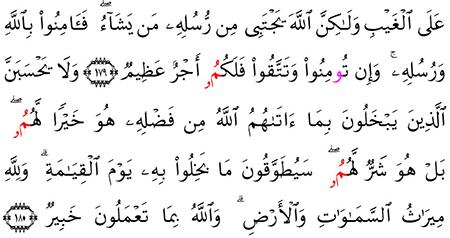 عَلَى ٱلْغَيْبِ وَلَٰكِنَّ ٱللَّهَ يَجْتَبِى مِن رُّسُلِهِۦ مَن يَشَآءُ ۖ فَـَٔامِنُوا۟ بِٱللَّهِ
وَرُسُلِهِۦ ۚ وَإِن تُومِنُوا۟ وَتَتَّقُوا۟ فَلَكُمُۥٓ أَجْرٌ عَظِيمٌ ١٧٩ وَلَا يَحْسَبَنَّ
ٱلَّذِينَ يَبْخَلُونَ بِمَآ ءَاتَىٰهُمُ ٱللَّهُ مِن فَضْلِهِۦ هُوَ خَيْرًا لَّهُمُۥ ۖ
بَلْ هُوَ شَرٌّ لَّهُمُۥ ۖ سَيُطَوَّقُونَ مَا بَخِلُوا۟ بِهِۦ يَوْمَ ٱلْقِيَٰمَةِ ۗ وَلِلَّهِ
مِيرَٰثُ ٱلسَّمَٰوَٰتِ وَٱلْأَرْضِ ۗ وَٱللَّهُ بِمَا تَعْمَلُونَ خَبِيرٌ ١٨٠